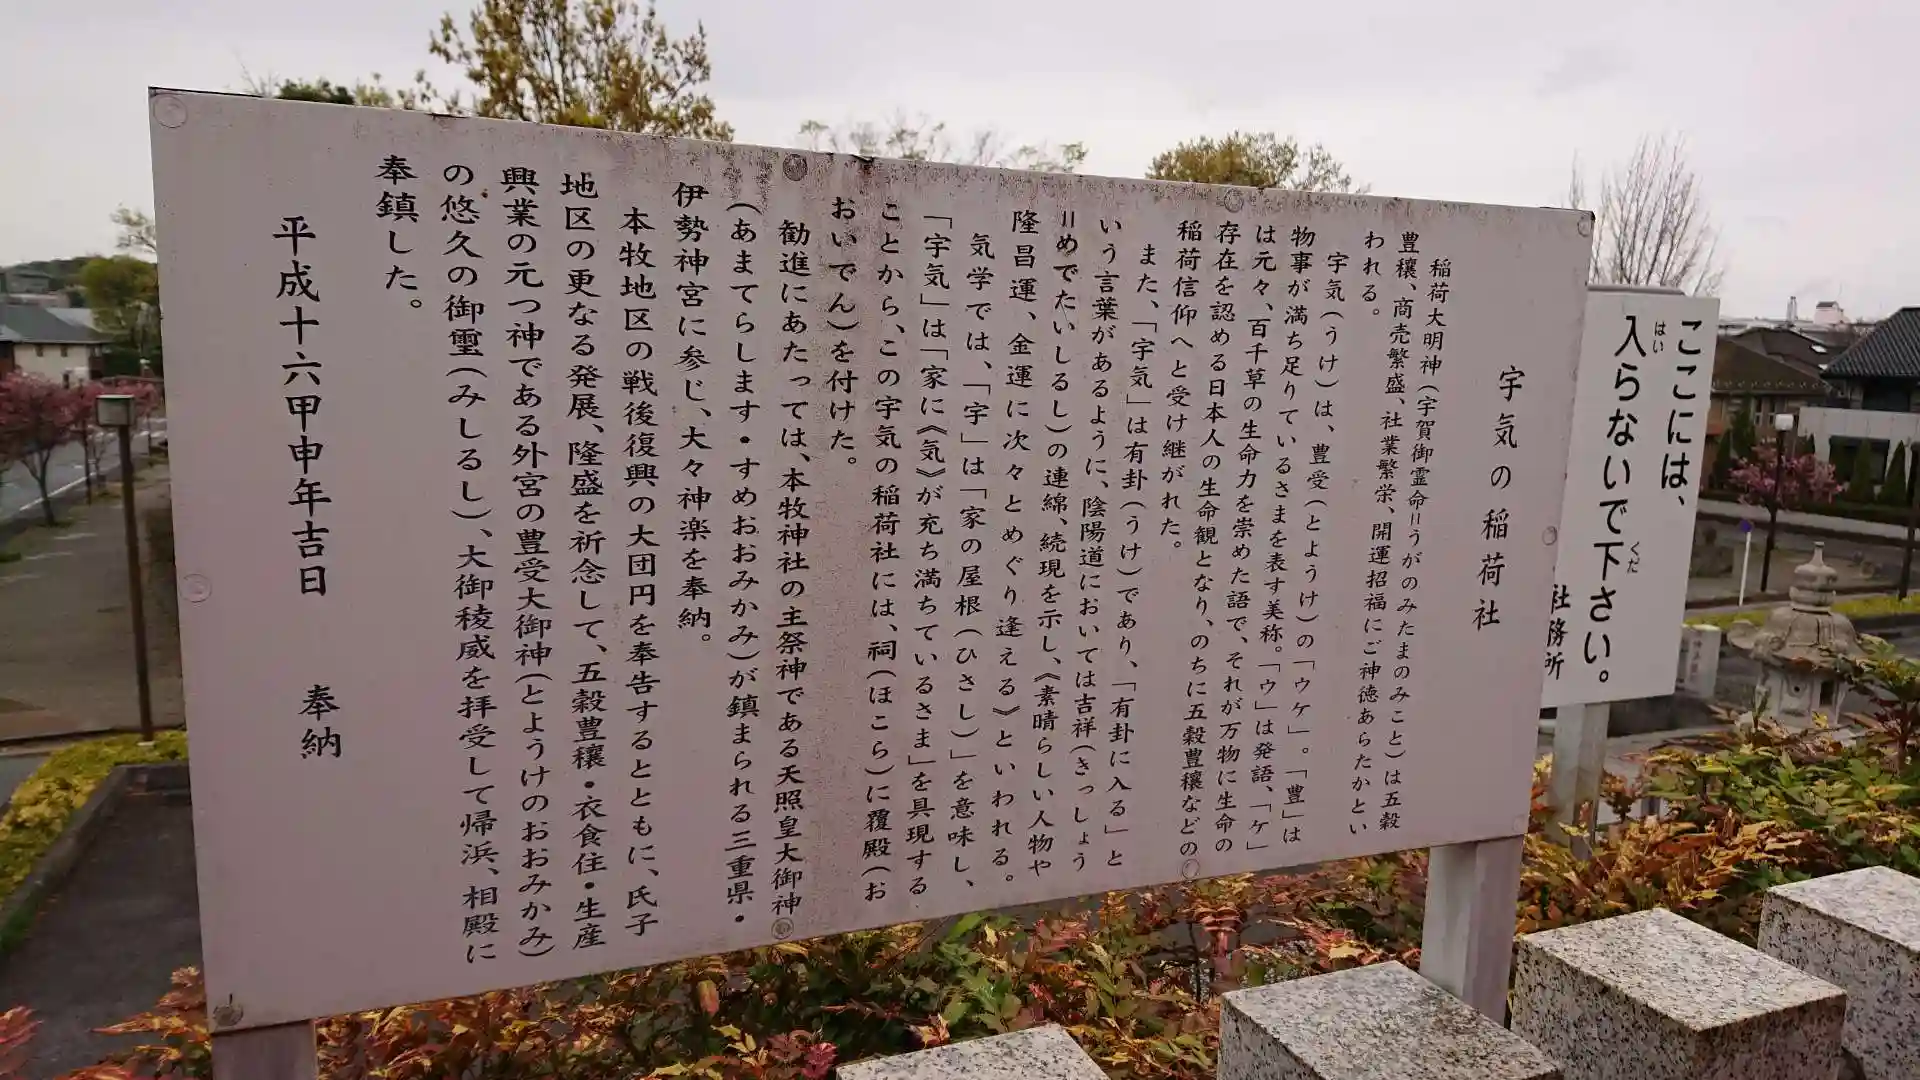 宇気の稲荷社
稲荷大明神(宇賀御霊命=うがのみたまのみこと)は五穀
豊穣、商売繁盛、社業繁栄、開運招福にご神徳あらたかとい
われる。
宇気(うけ)は、豊受(とようけ)の「ウケ」。「豊」は
物事が満ち足りているさまを表す美称。「ウ」は発語、「ケ」
は元々、百千草の生命力を崇めた語で、それが万物に生命の
存在を認める日本人の生命観となり、のちに五穀豊穣などの
稲荷信仰へと受け継がれた。
また、「宇気」は有卦(うけ)であり、「有卦に入る」と
いう言葉があるように、陰陽道においては吉祥(きっしょう
=めでたいしるし)の連綿、続現を示し、《素晴らしい人物や
隆昌運、金運に次々とめぐり逢える》といわれる。
気学では、「宇」は「家の屋根(ひさし)」を意味し、
「宇気」は「家に《気》が充ち満ちているさま」を具現する
ことから、この宇気の稲荷社には、祠(ほこら)に覆殿(お
おいでん)を付けた。
勧進にあたっては、本牧神社の主祭神である天照皇大御神
(あまてらします・すめおおみかみ)が鎮まられる三重県・
伊勢神宮に参じ、大々神楽を奉納。
本牧地区の戦後復興の大団円を奉告するとともに、氏子
地区の更なる発展、隆盛を祈念して、五穀豊穣・衣食住・生産
興業の元つ神である外宮の豊受大御神(とようけのおおみかみ)
の悠久の御璽(みしるし)、大御稜威を拝受して帰浜、相殿に
奉鎮した。
平成十六甲申年吉日 奉納
ここには、
入らないで下さい。
はい
くだ
社務所